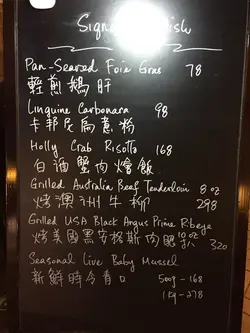 Signature Dish
Pan-Seared Foie Gras 78
輕煎鵝肝
Linguine Carbonara 98
卡邦尼扁意粉
Holly Crab Risotto 168
白酒蟹肉燴飯
Grilled Australia Beef Tenderloin 8 oz
烤澳洲牛柳 298
Grilled USA Black Angus Prime Ribeye
烤美國黑安格斯肉眼 10 oz 320
Seasonal Live Baby Mussel
新鮮時令青口 500g - 168
1kg - 278